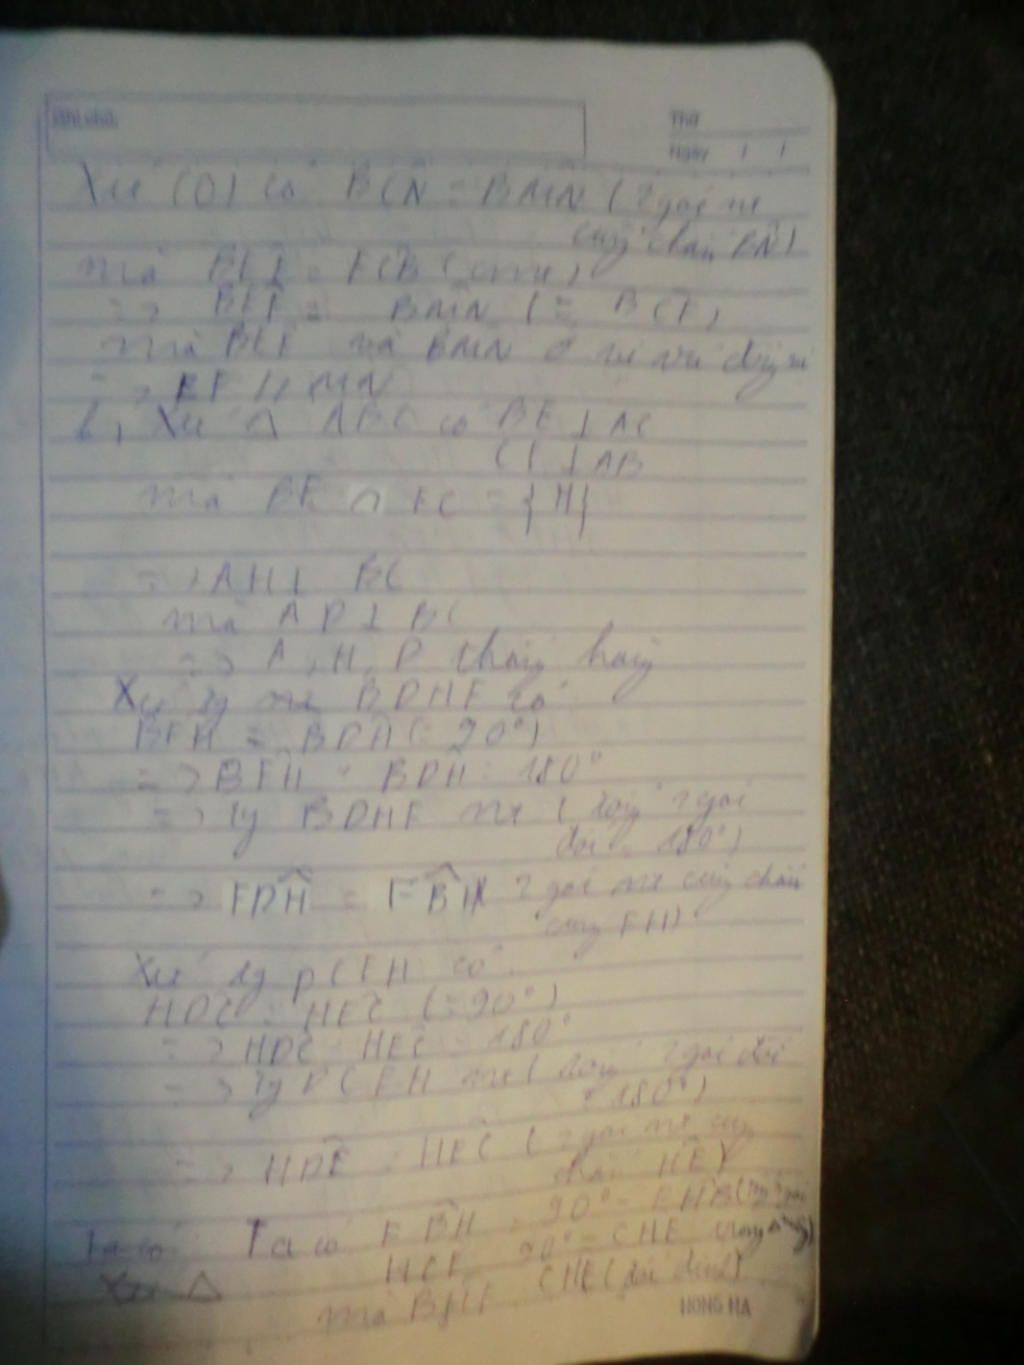 Ghi chú:
Thứ
Ngày / /
Xét (O) có BĈN = BM̂N (2 góc nt
cùng chắn BN)
mà BEF = FCB (cmt)
=> BEF = BMN (= BCF)
mà BEF và BMN ở vị trí đồng vị
=> EF // MN
b, Xét Δ ABC có BE ⊥ AC
CF ⊥ AB
mà BE ∩ FC = {H}
=> AH ⊥ BC
mà AD ⊥ BC
=> A, H, D thẳng hàng
Xét tg BDHF có
BFH = BDH (= 90°)
=> BFH + BDH = 180°
=> tg BDHF nt (tổng 2 góc
đối = 180°)
=> FDĤ = FB̂H 2 góc nt cùng chắn
cung FH)
Xét tg DCEH có
HDC = HEC (= 90°)
=> HDC + HEC = 180°
=> tg DCEH nt (tổng 2 góc đối
= 180°)
=> HDE = HEC (2 góc nt cùng
chắn HE)
Ta có Ta có FBH = 90° - FHB
Xét Δ HCE 90° - CHE
mà BHF CHE (đối đỉnh)
HONG HA